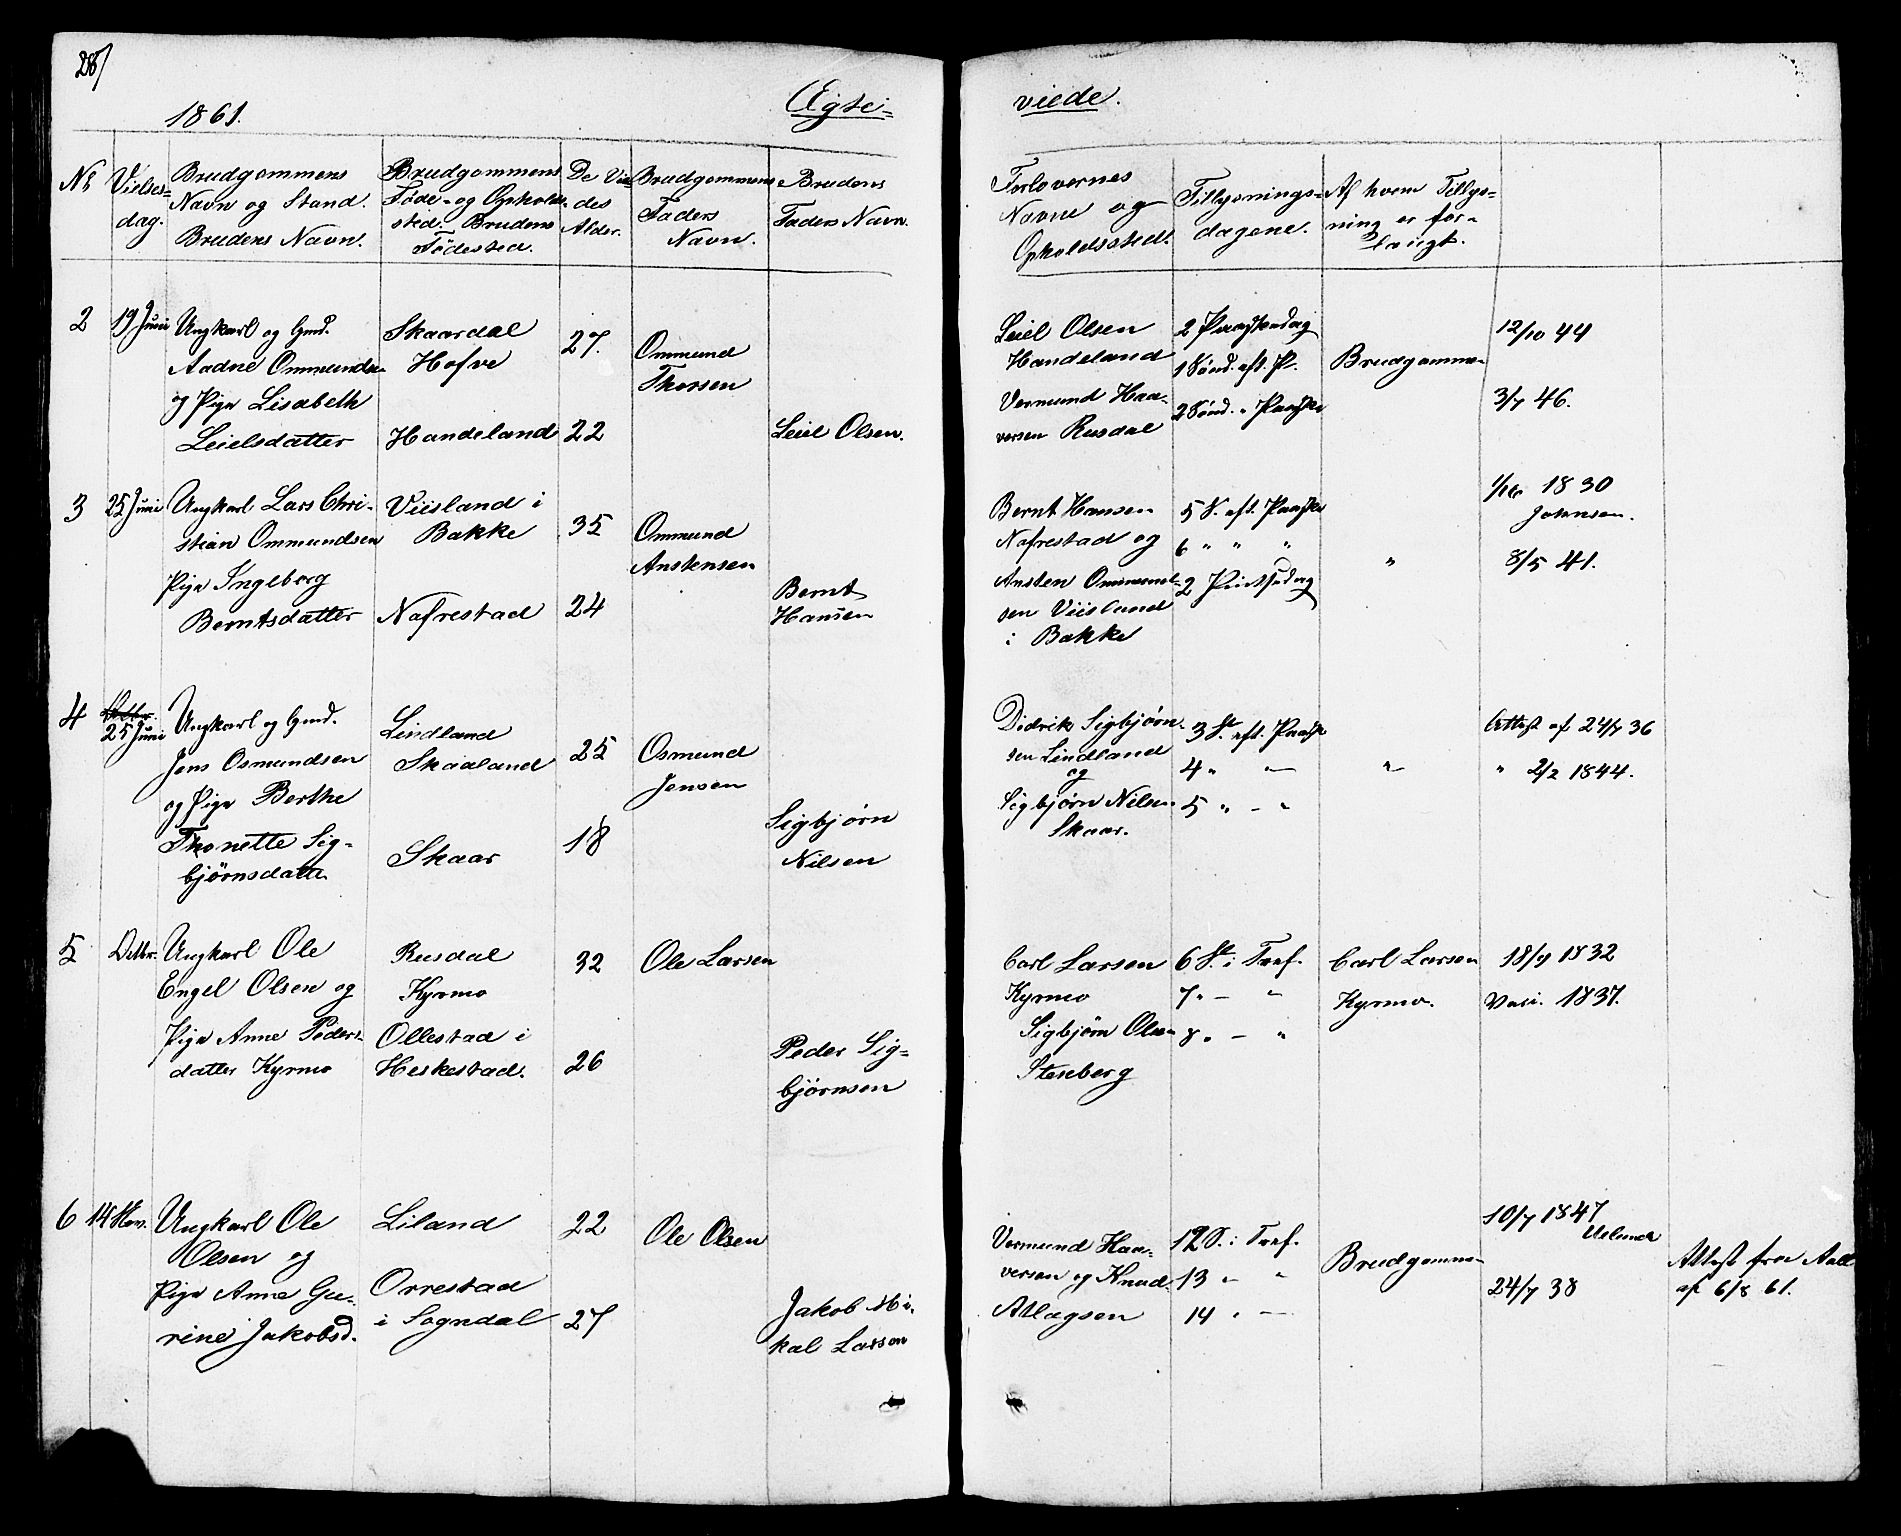 28/
1861.
Ægte-
viede.
No
Vielses-
dag.
Brudgommens
Navn og Stand.
Brudens Navn.
Brudgommens
Føde- og Opholds-
sted. Brudens
Fødested.
De Vie
des
Alder.
Brudgommens
Faders
Navn.
Brudens
Faders Navn.
Forlovernes
Navne og
Opholdssted.
Tillysnings-
dagene.
Af hvem Tillys-
ning er for-
langt.
2
19 Juni
Ungkarl og Gmd.
Aadne Ommundsen
og Pige Lisabeth
Leielsdatter
Skaardal
Hofve
Handeland
27.
22
Ommund
Thorsen
Leiel Olsen.
Leiel Olsen
Handeland
Vermund Haa-
versen Rusdal
2 Paaskedag
1 Sønd. eft. P.
2 Sønd. " Paaske
Brudgommen
12/10 44
3/7 46.
3
25 Juni
Ungkarl Lars Chri-
stian Ommundsen
Pige Ingeborg
Berntsdatter
Viisland i
Bakke
Nafrestad
35
24
Ommund
Anstensen
Bernt
Hansen
Bernt Hansen
Nafrestad og
Ansten Ommund-
sen Viisland
i Bakke
5 S. eft. Paaske
6 " " "
2 Pintsedag
"
1830
Johnsen.
8/5 41.
4
25 Juni
Ungkarl og Gmd.
Jens Osmundsen
og Pige Berthe
Thonette Sig-
bjørnsdatter
Lindland
Skaaland
Skaar
25
18
Osmund
Jensen
Sigbjørn
Nilsen
Didrik Sigbjørn-
sen Lindland
og
Sigbjørn Nilsen
Skaar.
3 S. eft. Paaske
4 " —
5 " — "
"
Attest af 24/7 36
" 2/2 1844.
5
Octbr.
Ungkarl Ole
Engel Olsen og
Pige Anne Peders-
datter Kyrmo
Rusdal
Kyrmo
Ollestad i
Heskestad.
32
26
Ole Larsen
Peder Sig-
bjørnsen
Carl Larsen
Kyrmo
Sigbjørn Olsen
Stenberg
6 S. i Tref.
7 " — "
8 " — "
Carl Larsen
Kyrmo.
18/9 1832
Vasi. 1837.
6
14 Nov.
Ungkarl Ole
Olsen og
Pige Anne Gu-
rine Jakobsd.
Liland
Orrestad
i Sogndal
22
27
Ole Olsen
Jakob Mi-
kal Larson
Vermund Haa-
versen og Knud
Atlagsen
12 S. i Tref.
13 " "
14 " —
Brudgommen
10/7 1847
24/7 38
Attest fra Aall
af 6/8 61.